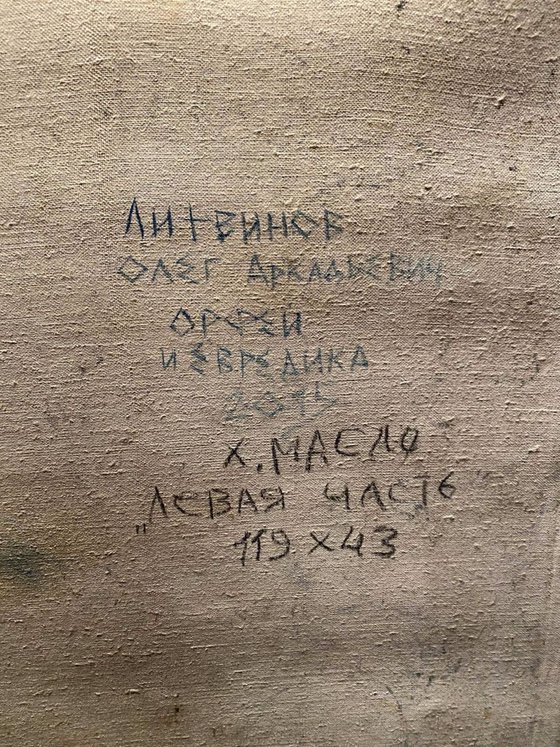 ЛИТВИНОВ
ОЛЕГ АРКАДЬЕВИЧ
ОРФЕЙ
И ЕВРЕДИКА
2015
Х. МАСЛО
„ЛЕВАЯ ЧАСТЬ"
119 х 43